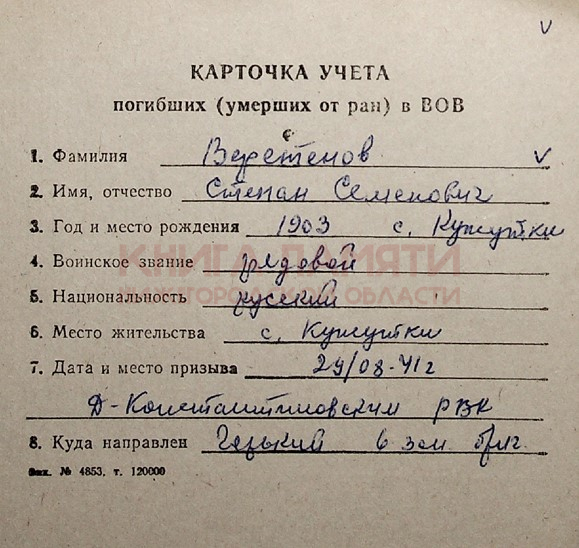 КАРТОЧКА УЧЕТА
погибших (умерших от ран) в ВОВ
1. Фамилия Веретенов
2. Имя, отчество Степан Семенович
3. Год и место рождения 1903 с. Кужутки
КНИГА ПАМЯТИ
4. Воинское звание рядовой
НИЖЕГОРОДСКОЙ ОБЛАСТИ
5. Национальность русский
6. Место жительства с. Кужутки
7. Дата и место призыва 29/08-41г
Д-Константиновским РВК
8. Куда направлен 6 зап бриг.
Зак. № 4853. т. 120000